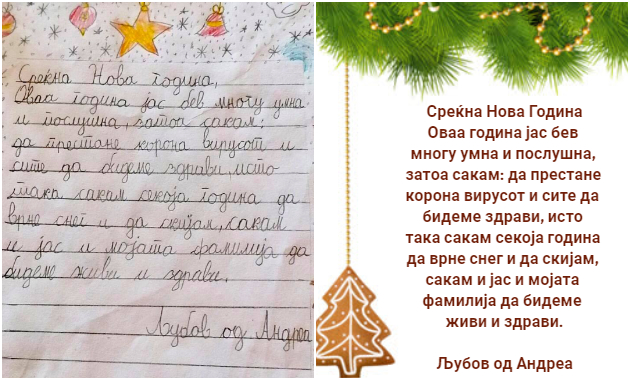 Среќна Нова година,
Оваа година јас бев многу умна
и послушна, затоа сакам:
да престане корона вирусот и
сите да бидеме здрави, исто
така сакам секоја година да
врне снег и да скијам, сакам
и јас и мојата фамилија да
бидеме живи и здрави.
Љубов од Андреа
Среќна Нова Година
Оваа година јас бев
многу умна и послушна,
затоа сакам: да престане
корона вирусот и сите да
бидеме здрави, исто
така сакам секоја година
да врне снег и да скијам,
сакам и јас и мојата
фамилија да бидеме
живи и здрави.
Љубов од Андреа